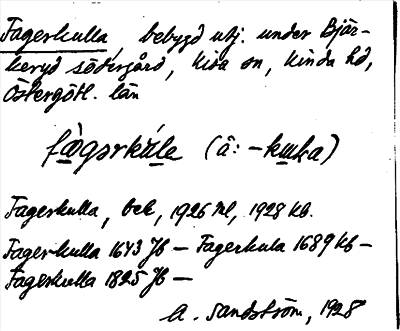 Fagerkulla, bebygd utj. under Bjär-
keryd södergård, Kisa sn, Kinda hd,
Östergötl. län
fàgərkúle (ä: -kuka)
Fagerkulla, beb, 1926 Ml, 1928 kb.
Fagerkulla 1643 Jb – Fagerkula 1689 Kb –
Fagerkulla 1825 Jb –
A. Sandström, 1928